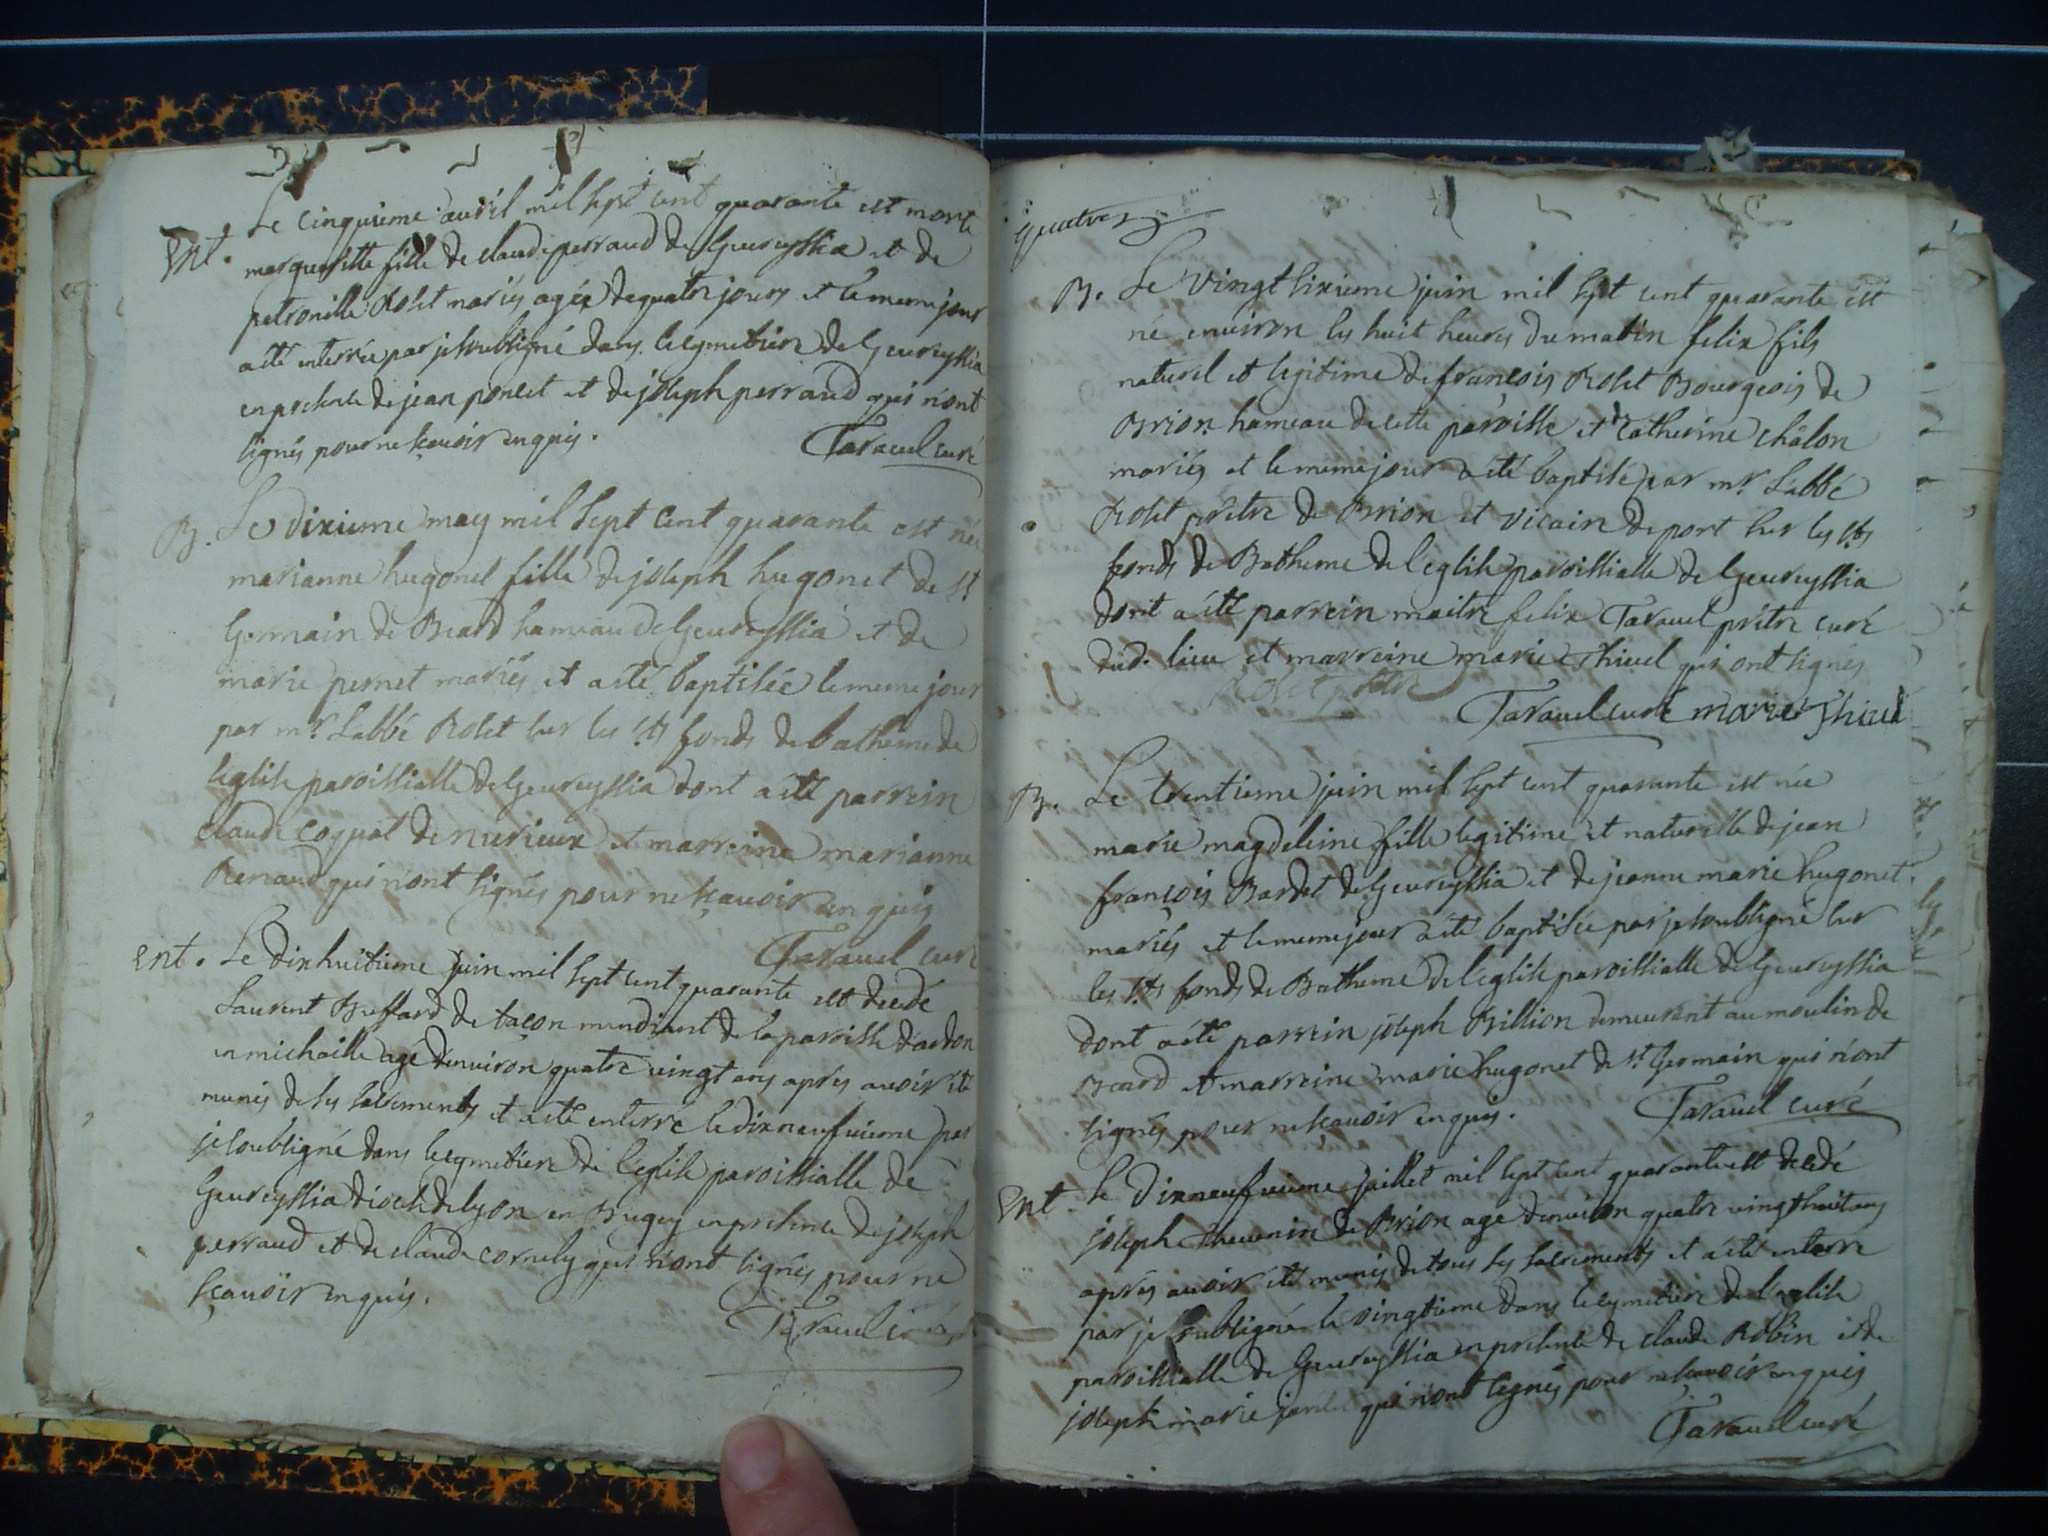 Le cinquieme auril mil sept cent quarante est morte
Ent. marguerite fille de claude perraud de Geureyssia et de
petronille Rolet mariés agée de quatre jours et le meme jour
a été enterrée par je soubsigné dans le cymetiere de Geureyssia
en presence de jean poncet et de joseph perraud qui n'ont
signés pour ne sçavoir enquis.
Taravel curé
B. Le dixieme may mil sept cent quarante est née
marianne hugonet fille de joseph hugonet de st
Germain de Beard hameau de Geureyssia et de
marie pernet mariés et a été baptisée le meme jour
par mr. Labbé Rolet sur les sts fonds de batheme de
l'eglise paroissialle de Geureyssia dont a été parrein
claude coquat de nurieux et marreine marianne
Renaud qui n'ont signés pour ne sçavoir enquis
Taravel curé
Ent. Le dixhuitieme juin mil sept cent quarante est decedé
Laurent Buffard de tacon mendiant de la paroisse d'ardon
en michaille agé d'environ quatre vingt ans aprés avoir été
munis de ses sacrements et a été enterré le dixneufvieme par
je soubsigné dans le cymetiere de l'eglise paroissialle de
Geureyssia diocese de lyon en Bugey en presence de joseph
perraud et de claude cornely qui n'ont signés pour ne
sçavoir enquis.
Taravel curé
quatre
B. Le vingt sixieme juin mil sept cent quarante est
né environ les huit heures du matin felix fils
naturel et legitime de françois Rolet Bourgeois de
Brion hameau de cette paroisse et de catherine châlon
mariés et le méme jour a été baptisé par mr. Labbé
Rolet prétre de Brion et vicain de port sur les sts
fonds de Batheme de l'eglise paroissialle de Geureyssia
dont a été parrein maitre felix Taravel prétre curé
dud. lieu et marreine marie Thieul qui ont signés
Rolet
Taravel curé marie Thieul
B. Le trentieme juin mil sept cent quarante est née
marie magdeleine fille legitime et naturelle de jean
françois Bardet de Geureyssia et de jeanne marie hugonet.
mariés et le meme jour a été baptisée par je soubsigné sur
les sts fonds de Batheme de l'eglise paroissialle de Geureyssia
dont a été parrein joseph Billion demeurant au moulin de
Beard et marreine marie hugonet de st Germain qui n'ont
signés pour ne sçavoir enquis.
Taravel curé
Ent. Le dixneufvieme juillet mil sept cent quarante est decedé
joseph Thevenin de Brion agé d'environ quatre vingt huit ans
aprés avoir été munis de tous ses sacrements et a été enterré
par je soubsigné le vingtieme dans le cymetiere de l'eglise
paroissialle de Geureyssia en presence de claude Robin et de
joseph marie qui n'ont signés pour ne sçavoir enquis
Taravel curé